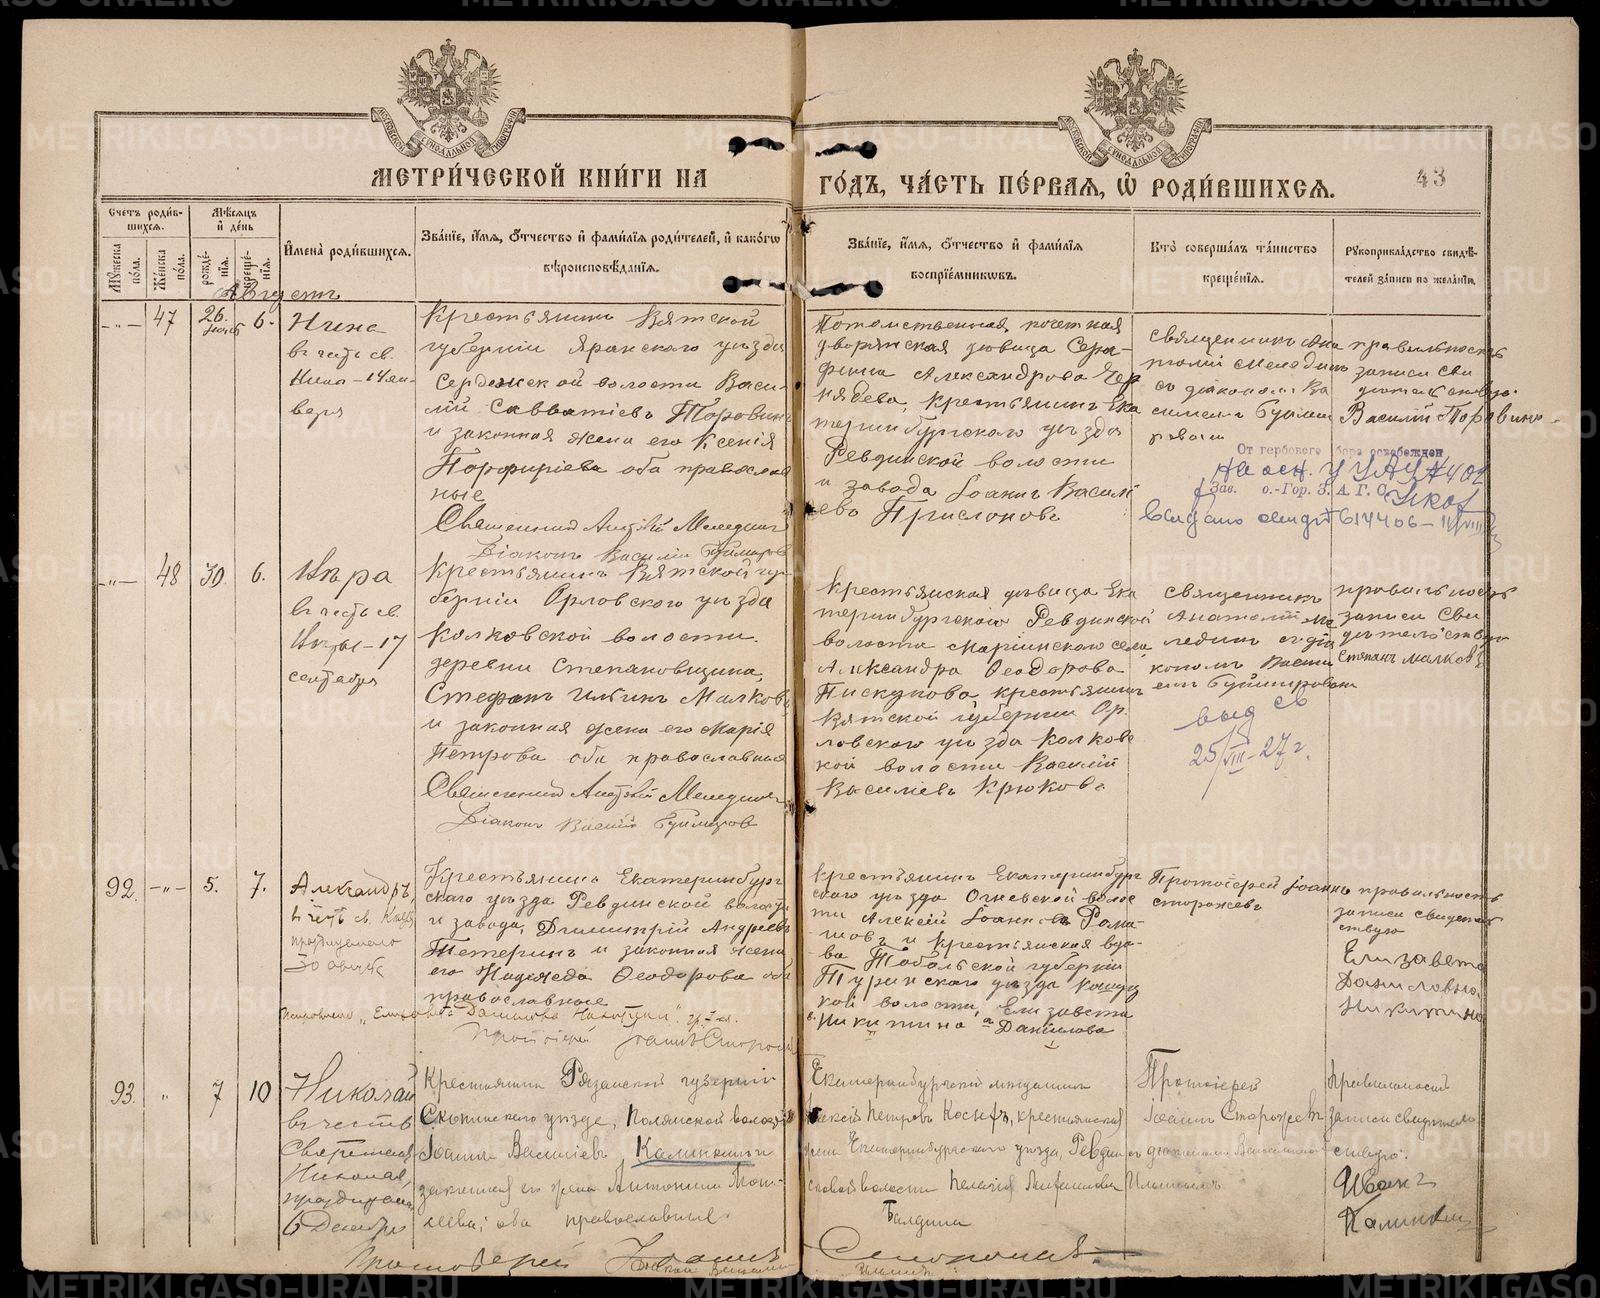 МЕТРИ́ЧЕСКОЙ КНИ́ГИ НА
ГО́ДЪ, ЧА́СТЬ ПЕ́РВАЯ, Ѽ РОДИ́ВШИХСЯ.
43
Счетъ роди́в-
шихся.
Мѣ́сяцъ
и҆ де́нь
Мꙋ́жеска
по́ла.
Же́нска
по́ла.
рожде́-
нїя.
креще́-
нїя.
И҆мена̀ роди́вшихся.
Зва́нїе, и҆́мя, ѻ҆́тчество и҆ фами́лїя роди́телей, и҆ како́гѡ
вѣроисповѣ́данїя.
Зва́нїе, и҆́мя, ѻ҆́тчество и҆ фами́лїя
воспрїе́мниковъ.
Кто̀ соверша́лъ та́инство
креще́нїя.
Рꙋкоприкла́дство свидѣ́-
телей за́писи по жела́нїю.
Августъ
47
26.
6.
Нина
въ честь св.
Нины - 14 ян-
варя
Крестьянинъ Вятской
губерніи Яранскаго уѣзда
Сердежской волости Васи-
лій Савватіевъ Торовинъ
и законная жена его Ксенія
Порфиріева оба православ
ные
Священникъ Анатолій Мелединъ
Діаконъ Василій
Потомственная почетная
дворянская дѣвица Сера-
фима Александрова Чер
нядева, крестьянинъ Ека
теринбургскаго уѣзда
Ревдинской волости
и завода Іоаннъ Василі
евъ Прислоновъ
Священникъ Ана
толій Меледин
съ діакономъ Ва
силіемъ
правильность
записи сви
дѣтельствую
Василій Торовинъ
От гербового сбора освобожден
Зав. о.-Гор. З. А. Г. С.
48
30.
6.
Вѣра
въ честь св.
Вѣры - 17
сентября
Крестьянинъ Вятской гу-
берніи Орловскаго уѣзда
Колковской волости.
деревни Степановщина,
Стефанъ Ильинъ Малковъ
и законная жена его Марія
Петрова оба православные
Священникъ Анатолій Меледин
Діаконъ Василій
Крестьянская дѣвица Ека
теринбургскаго Ревдинской
волости Маріинскаго села
Александра Ѳеодорова
Пискунова, крестьянинъ
Вятской губерніи Ор.
ловскаго уѣзда Колковс
кой волости Василій
Василіевъ Крюковъ
священникъ
Анатолій Ме
лединъ съ діа
кономъ Васи
правильность
записи Сви
дѣтельствую
Степанъ Малковъ
выд св
25/VIII-27 г.
92.
5.
7.
Александръ,
въ честь св. Князя
празднуемаго
30 августа
Крестьянинъ Екатеринбург
скаго уѣзда Ревдинской волости
и завода, Димитрій Андреевъ
Тетеринъ и законная жена
его Надежда Ѳеодорова оба
православные
Протоіерей Іоаннъ Сторожевъ
крестьянинъ Екатеринбург
скаго уѣзда Огневской волос
ти Алексій Іоанновъ Рома-
шовъ и крестьянская вдо-
ва Тобольской губерніи
Туринскаго уѣзда
кой волости, Елизавета
Никитина Данилова
Протоіерей Іоаннъ
Сторожевъ
правильность
записи свидѣтель
ствую
Елизавета
Даниловна
Никитина
93.
7
10
Николай
въ честь
Святителя
Николая,
празднуема
6 Декабря
Крестьянинъ Рязанской губерніи
Скопинскаго уѣзда, Полянской волости
Іоаннъ Василіевъ Калинкинъ
законная его жена Антонина
оба православные
Протоіерей Іоаннъ
Сторожевъ
Екатеринбургскій мѣщанинъ
Алексій Петровъ Косыхъ, крестьянская
Екатеринбургскаго уѣзда, Ревдин
ской волости
Балдина
Протоіерей
Іоаннъ Сторожевъ
съ діакономъ
Правильность
записи свидѣтель
ствую:
Иванъ
Калинкинъ